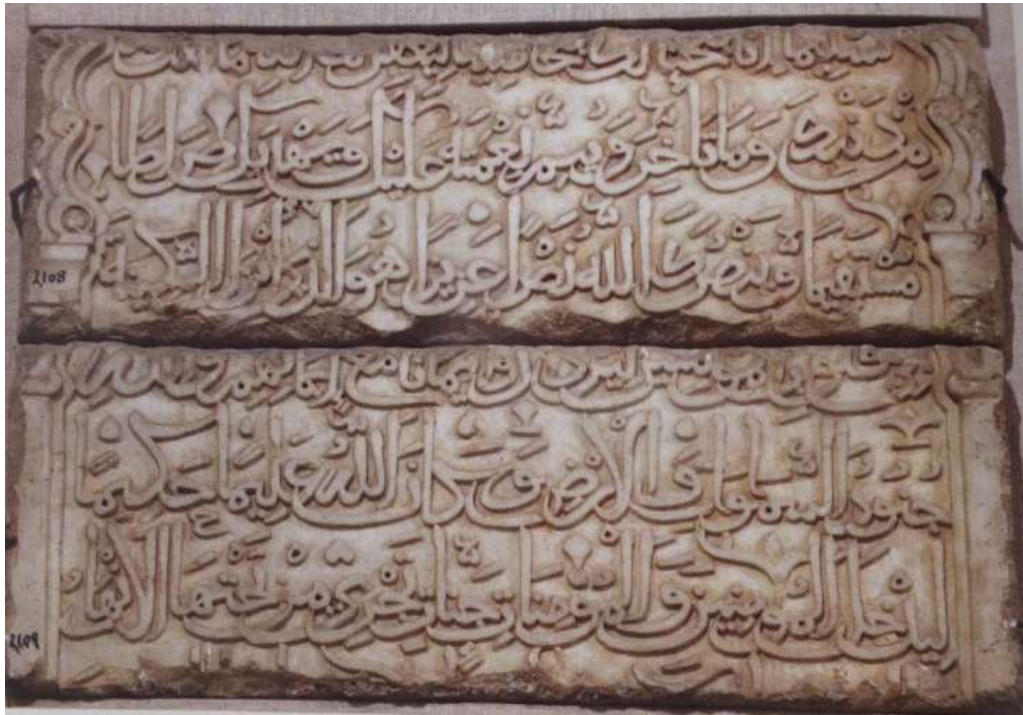 إنا فتحنا لك فتحا مبينا ليغفر لك الله ما تقدم
من ذنبك وما تأخر ويتم نعمته عليك ويهديك صراطا
مستقيما وينصرك الله نصرا عزيزا هو الذي أنزل السكينة
2108
في قلوب المؤمنين ليزدادوا إيمانا مع إيمانهم ولله
جنود السموات والأرض وكان الله عليما حكيما
ليدخل المؤمنين والمؤمنات جنات تجري من تحتها الأنهار
2109